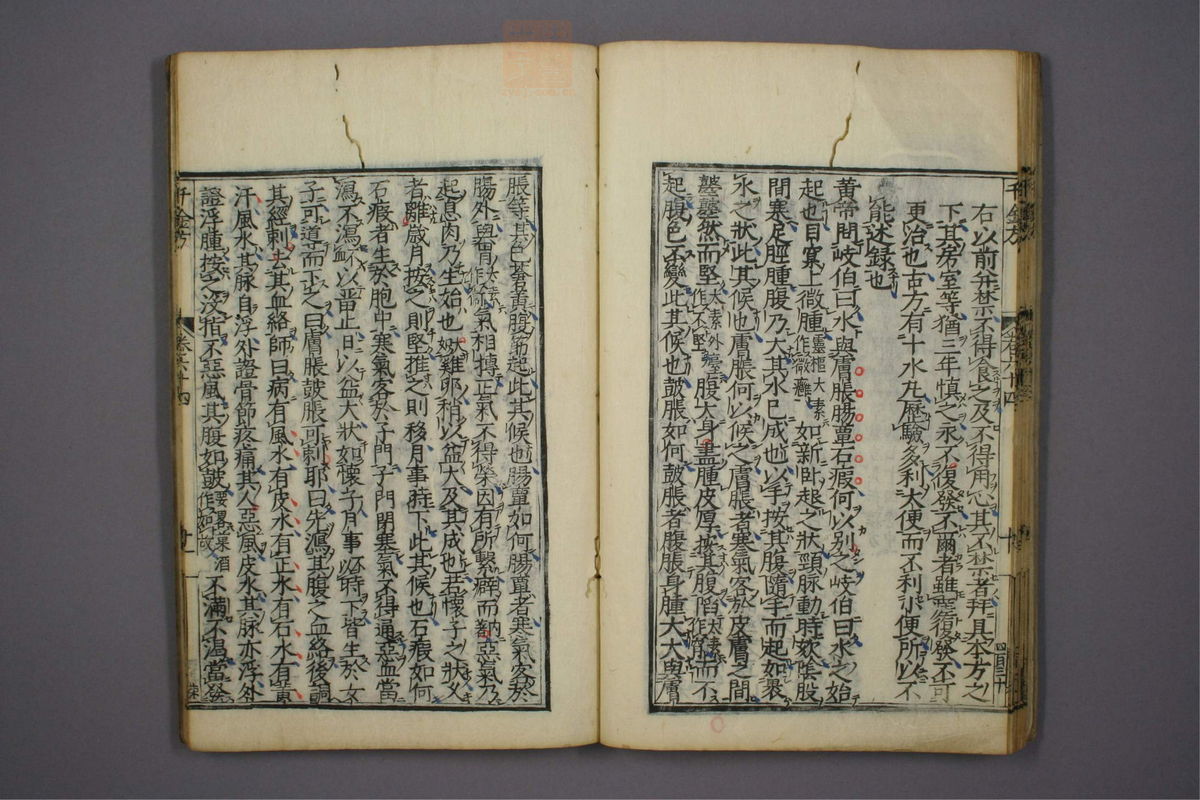 右以前幷禁不得食之及不得用心其不禁者幷具本方之
下其房室等猶三年愼之永不復發不爾者雖𢙣復發不可
更治也古方有十水丸歷驗多利大便而不利小便所以不
能述錄也
黃帝問岐伯曰水與膚脹腸蕈石瘕何以別之岐伯曰水之始
起也目窠上微腫靈樞太素作微癰如新臥起之狀頸脉動時欬陰股
間寒足脛腫腹乃大其水已成也以手按其腹隨手而起如裹
水之狀此其候也膚脹何以候之膚脹者寒氣客於皮膚之間
鼞鼞然而堅太素外臺作不堅腹大身盡腫皮厚按其腹陷而不
起腹色不變此其候也鼓脹如何鼓脹者腹脹身腫大大與膚
脹等其色蒼黃腹筋起此其候也腸蕈如何腸蕈者寒氣客於
腸外與胃太素作衛氣相搏正氣不得榮因有所繫癖而內著惡氣乃
起息肉乃生始也如雞卵稍以益大及其成也若懷子之狀久
者離歲月按之則堅推之則移月事時下此其候也石瘕如何
石瘕者生於胞中寒氣客於子門子門閉塞氣不得通惡血當
瀉不瀉血以留止日以益大狀如懷子月事不以時下皆生於女
子可道而下之曰膚脹鼓脹可刺耶曰先瀉其腹之血絡後調
其經刺去其血絡師曰病有風水有皮水有正水有石水有黃
汗風水其脉自浮外證骨節疼痛其人惡風皮水其脉亦浮外
證浮腫按之沒指不惡風其腹如鼓如故不滿不渴當發
千金方
卷六十四